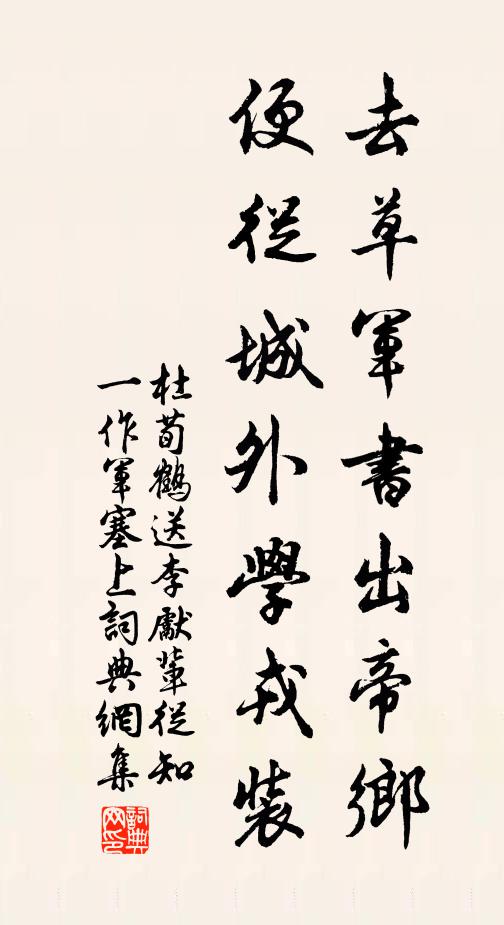 去草軍書出帝鄉
便從城外學戎裝
杜荀鶴送李獻輩從知
一作軍塞上詞典網集
詞典網印